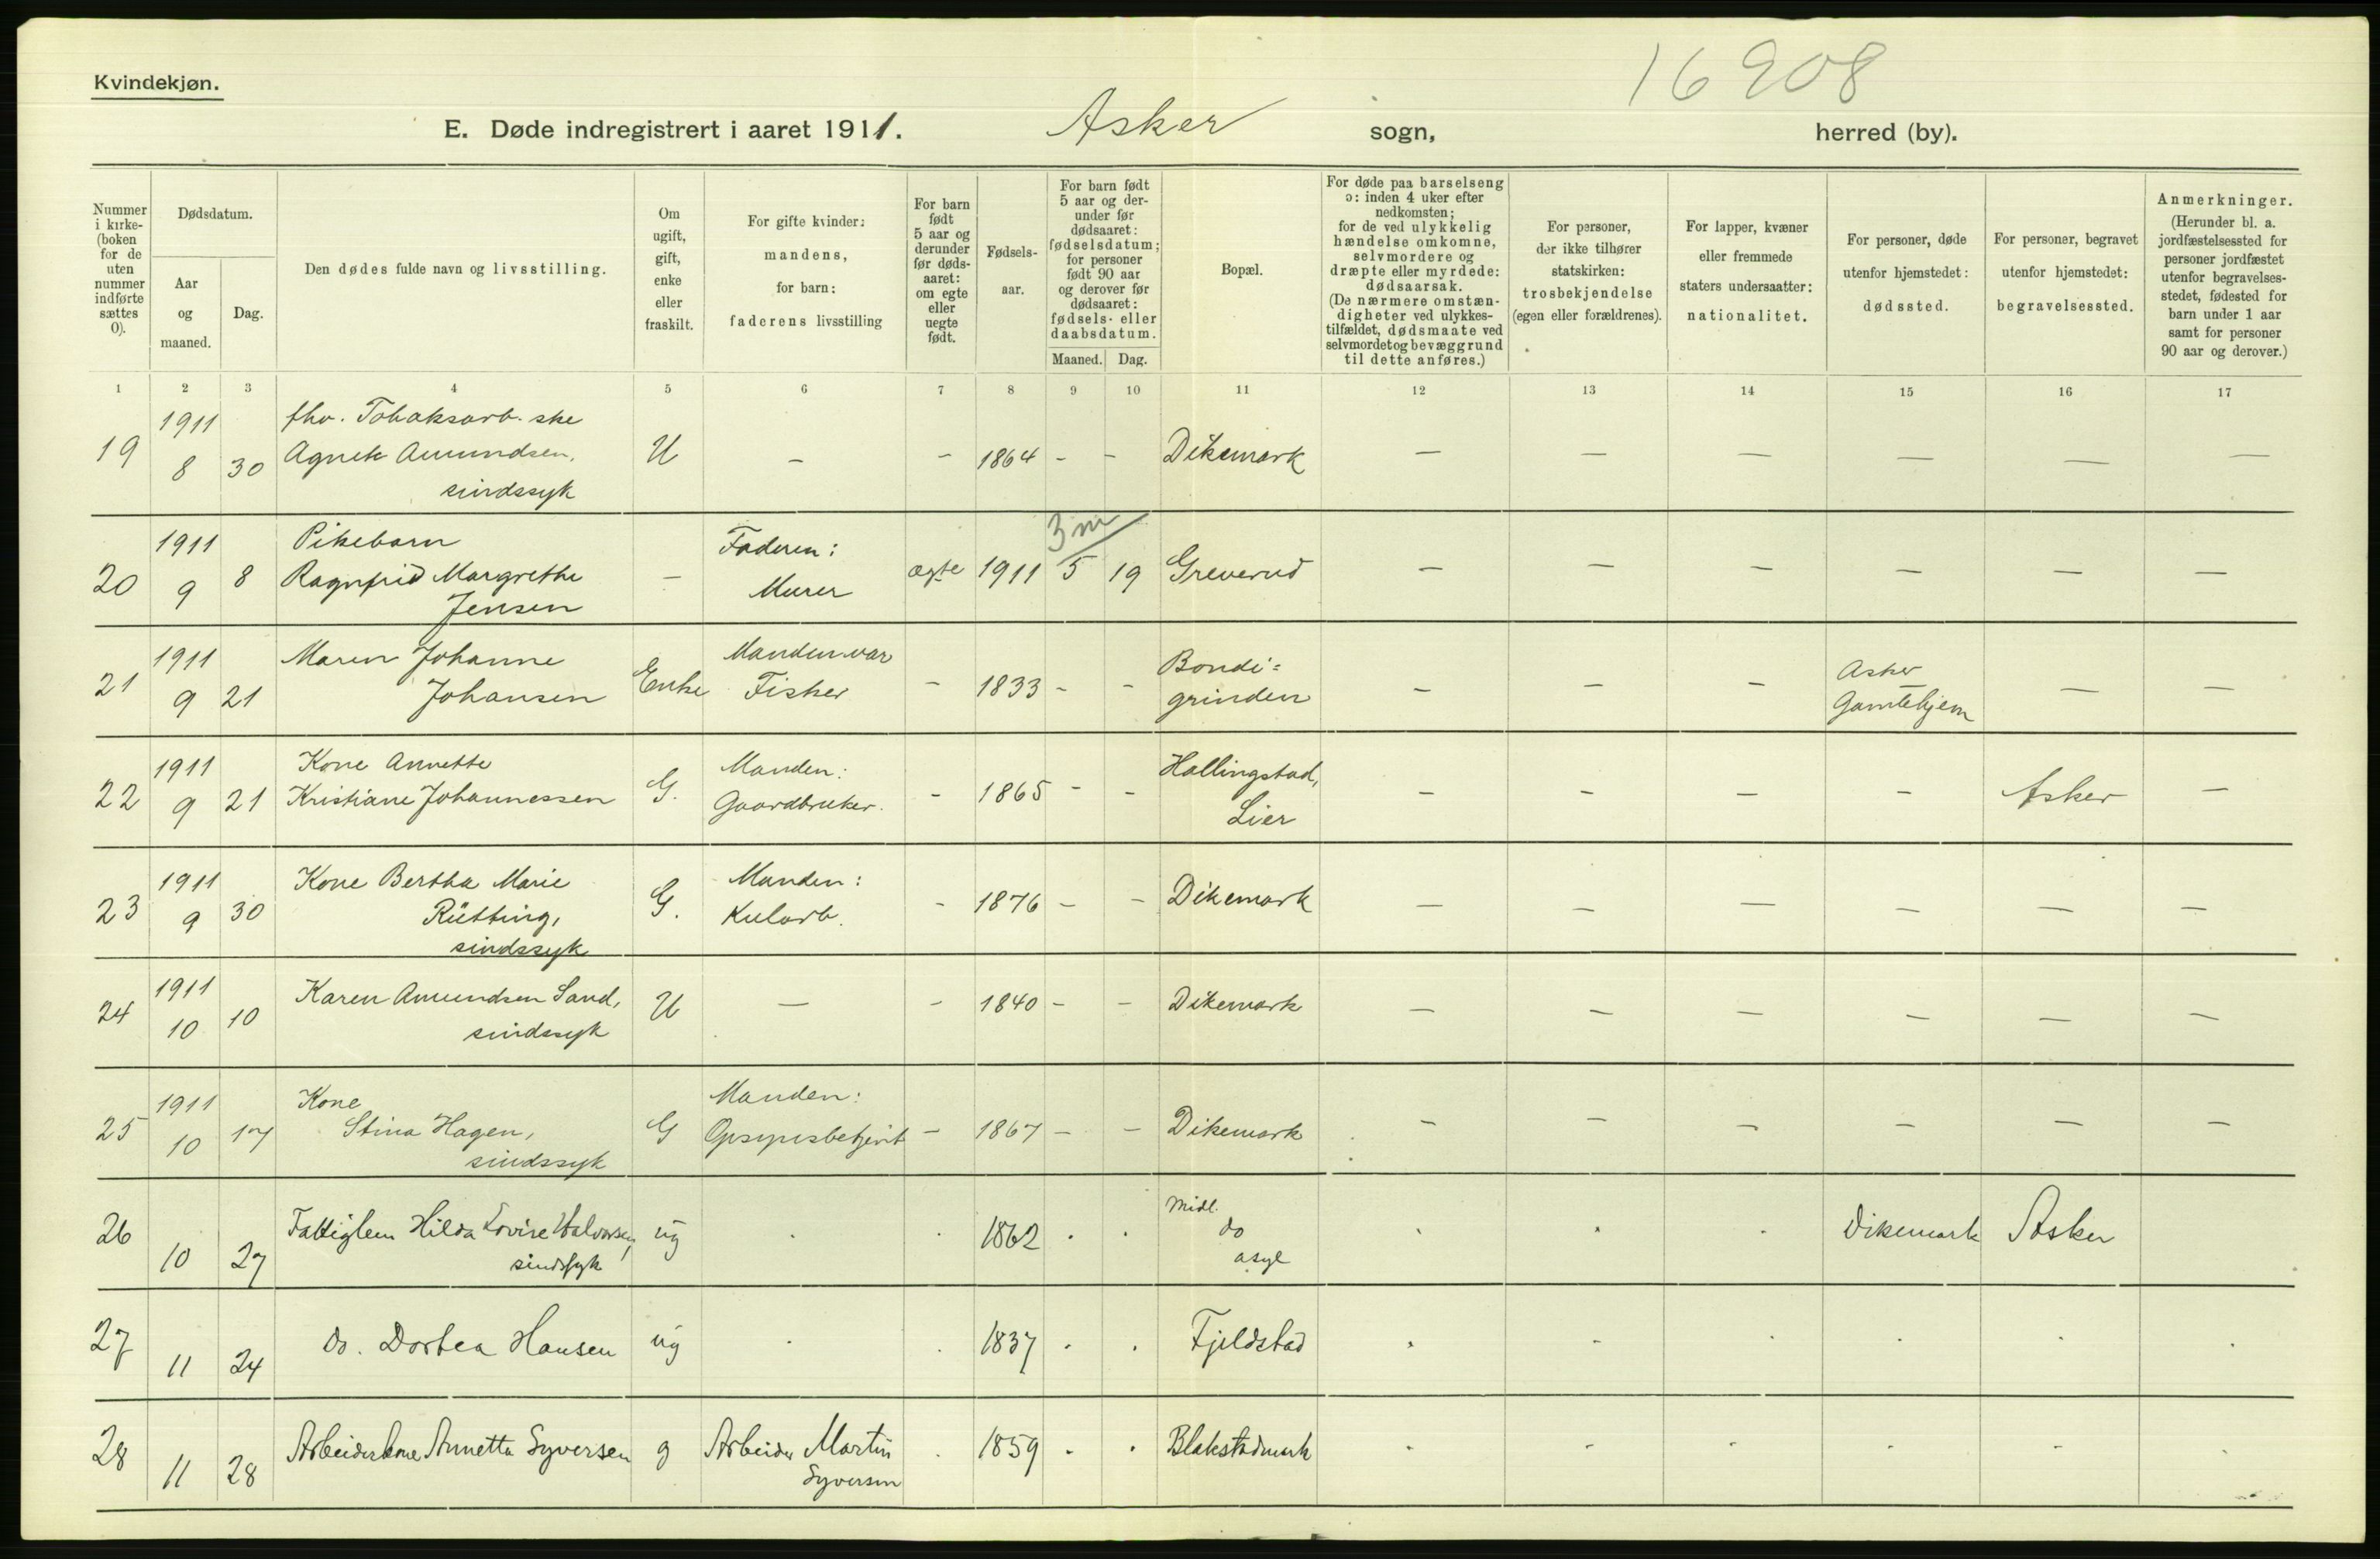 Kvindekjøn.
16908
E. Døde indregistrert i aaret 1911. Asker sogn, herred (by).
Nummer i kirke-(boken for de uten nummer indførte sættes 0).
Dødsdatum.
Aar og maaned.
Dag.
Den dødes fulde navn og livsstilling.
Om ugift, gift, enke eller fraskilt.
For gifte kvinder: mandens, for barn: faderens livsstilling
For barn født 5 aar og derunder før dødsaaret: om egte eller uegte født.
Fødsels-aar.
For barn født 5 aar og derunder før dødsaaret: fødselsdatum; for personer født 90 aar og derover før dødsaaret: fødsels- eller daabsdatum.
Maaned. Dag.
Bopæl.
For døde paa barselseng ɔ: inden 4 uker efter nedkomsten; for de ved ulykkelig hændelse omkomne, selvmordere og dræpte eller myrdede: dødsaarsak. (De nærmere omstændigheter ved ulykkestilfældet, dødsmaate ved selvmordet og bevæggrund til dette anføres.)
For personer, der ikke tilhører statskirken: trosbekjendelse (egen eller forældrenes).
For lapper, kvæner eller fremmede staters undersaatter: nationalitet.
For personer, døde utenfor hjemstedet: dødssted.
For personer, begravet utenfor hjemstedet: begravelsessted.
Anmerkninger. (Herunder bl. a. jordfæstelsessted for personer jordfæstet utenfor begravelsesstedet, fødested for barn under 1 aar samt for personer 90 aar og derover.)
1 2 3 4 5 6 7 8 9 10 11 12 13 14 15 16 17
19 1911 8 30 fhv. Tobaksarb.ske Agnete Amundsen, sindssyk U – – 1864 – – Dikemark – – – – – –
20 1911 9 8 Pikebarn Ragnfrid Margrethe Jensen – Faderen: Murer ægte 1911 3 m 5 19 Greverud – – – – – –
21 1911 9 21 Maren Johanne Johansen Enke Manden var Fisker – 1833 – – Bondi= grinden – – – Asker Gamlehjem – –
22 1911 9 21 Kone Annette Kristiane Johannessen G. Manden: Gaardbruker. – 1865 – – Hallingstad, Lier – – – – Asker –
23 1911 9 30 Kone Bertha Marie Rütting, sindssyk G. Manden: Kularb. – 1876 – – Dikemark – – – – – –
24 1911 10 10 Karen Amundsen Sand, sindssyk U – – 1840 – – Dikemark – – – – – –
25 1911 10 17 Kone Stina Hagen, sindssyk G Manden: Opsynsbetjent – 1867 – – Dikemark – – – – – –
26 10 27 Fattiglem Hilda Lovise Halvorsen, sindssyk ug 1862 Midl. do asyl Dikemark Asker
27 11 24 Do. Dortea Hansen ug 1837 Fjeldstad
28 11 28 Arbeiderkone Annetta Syversen g Arbeider Martin Syversen 1859 Blakstadmark